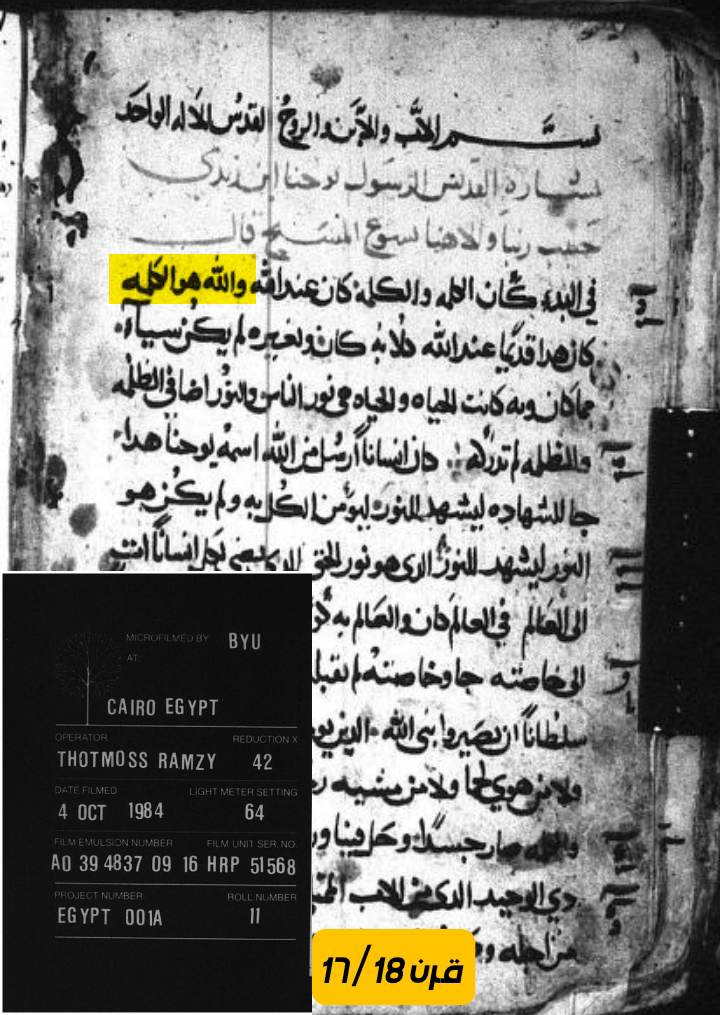 بسم الاب والابن والروح القدس الاله الواحد
بشاره القديس الرسول يوحنا ابن زبدي
حبيب ربنا والاهنا يسوع المسيح قال
في البدء كان الكلمه والكلمه كان عند الله والله هو الكلمه
كان هدا قديما عند الله كلا به كان وبغيره لم يكن سيا
مما كان وبه كانت الحياه والحياه هي نور الناس والنور اضا في الظلمه
والظلمه لم تدركه كان انسانا ارسل من الله اسمه يوحنا هدا
جا للشهاده ليشهد للنور ليومن الكل به ولم يكن هو
النور ليشهد للنور الدى هو نور الحق الدى يضى لكل انسانا
الى العالم في العالم كان والعالم به
الى خاصته جا وخاصته لم
سلطانا ان يصيروا بنى الله الدين
ولا من هوي لحما ولا من مشيه
والكلمه صار جسدا وحل فينا
دي الوحيد الدى من الاب
من اجله
MICROFILMED BY BYU
AT
CAIRO EGYPT
OPERATOR REDUCTION X
THOTMOSS RAMZY 42
DATE FILMED LIGHT METER SETTING
4 OCT 1984 64
FILM EMULSION NUMBER FILM UNIT SER. NO.
A0 39 4837 09 16 HRP 51568
PROJECT NUMBER ROLL NUMBER
EGYPT 001A 11
قرن 17/18